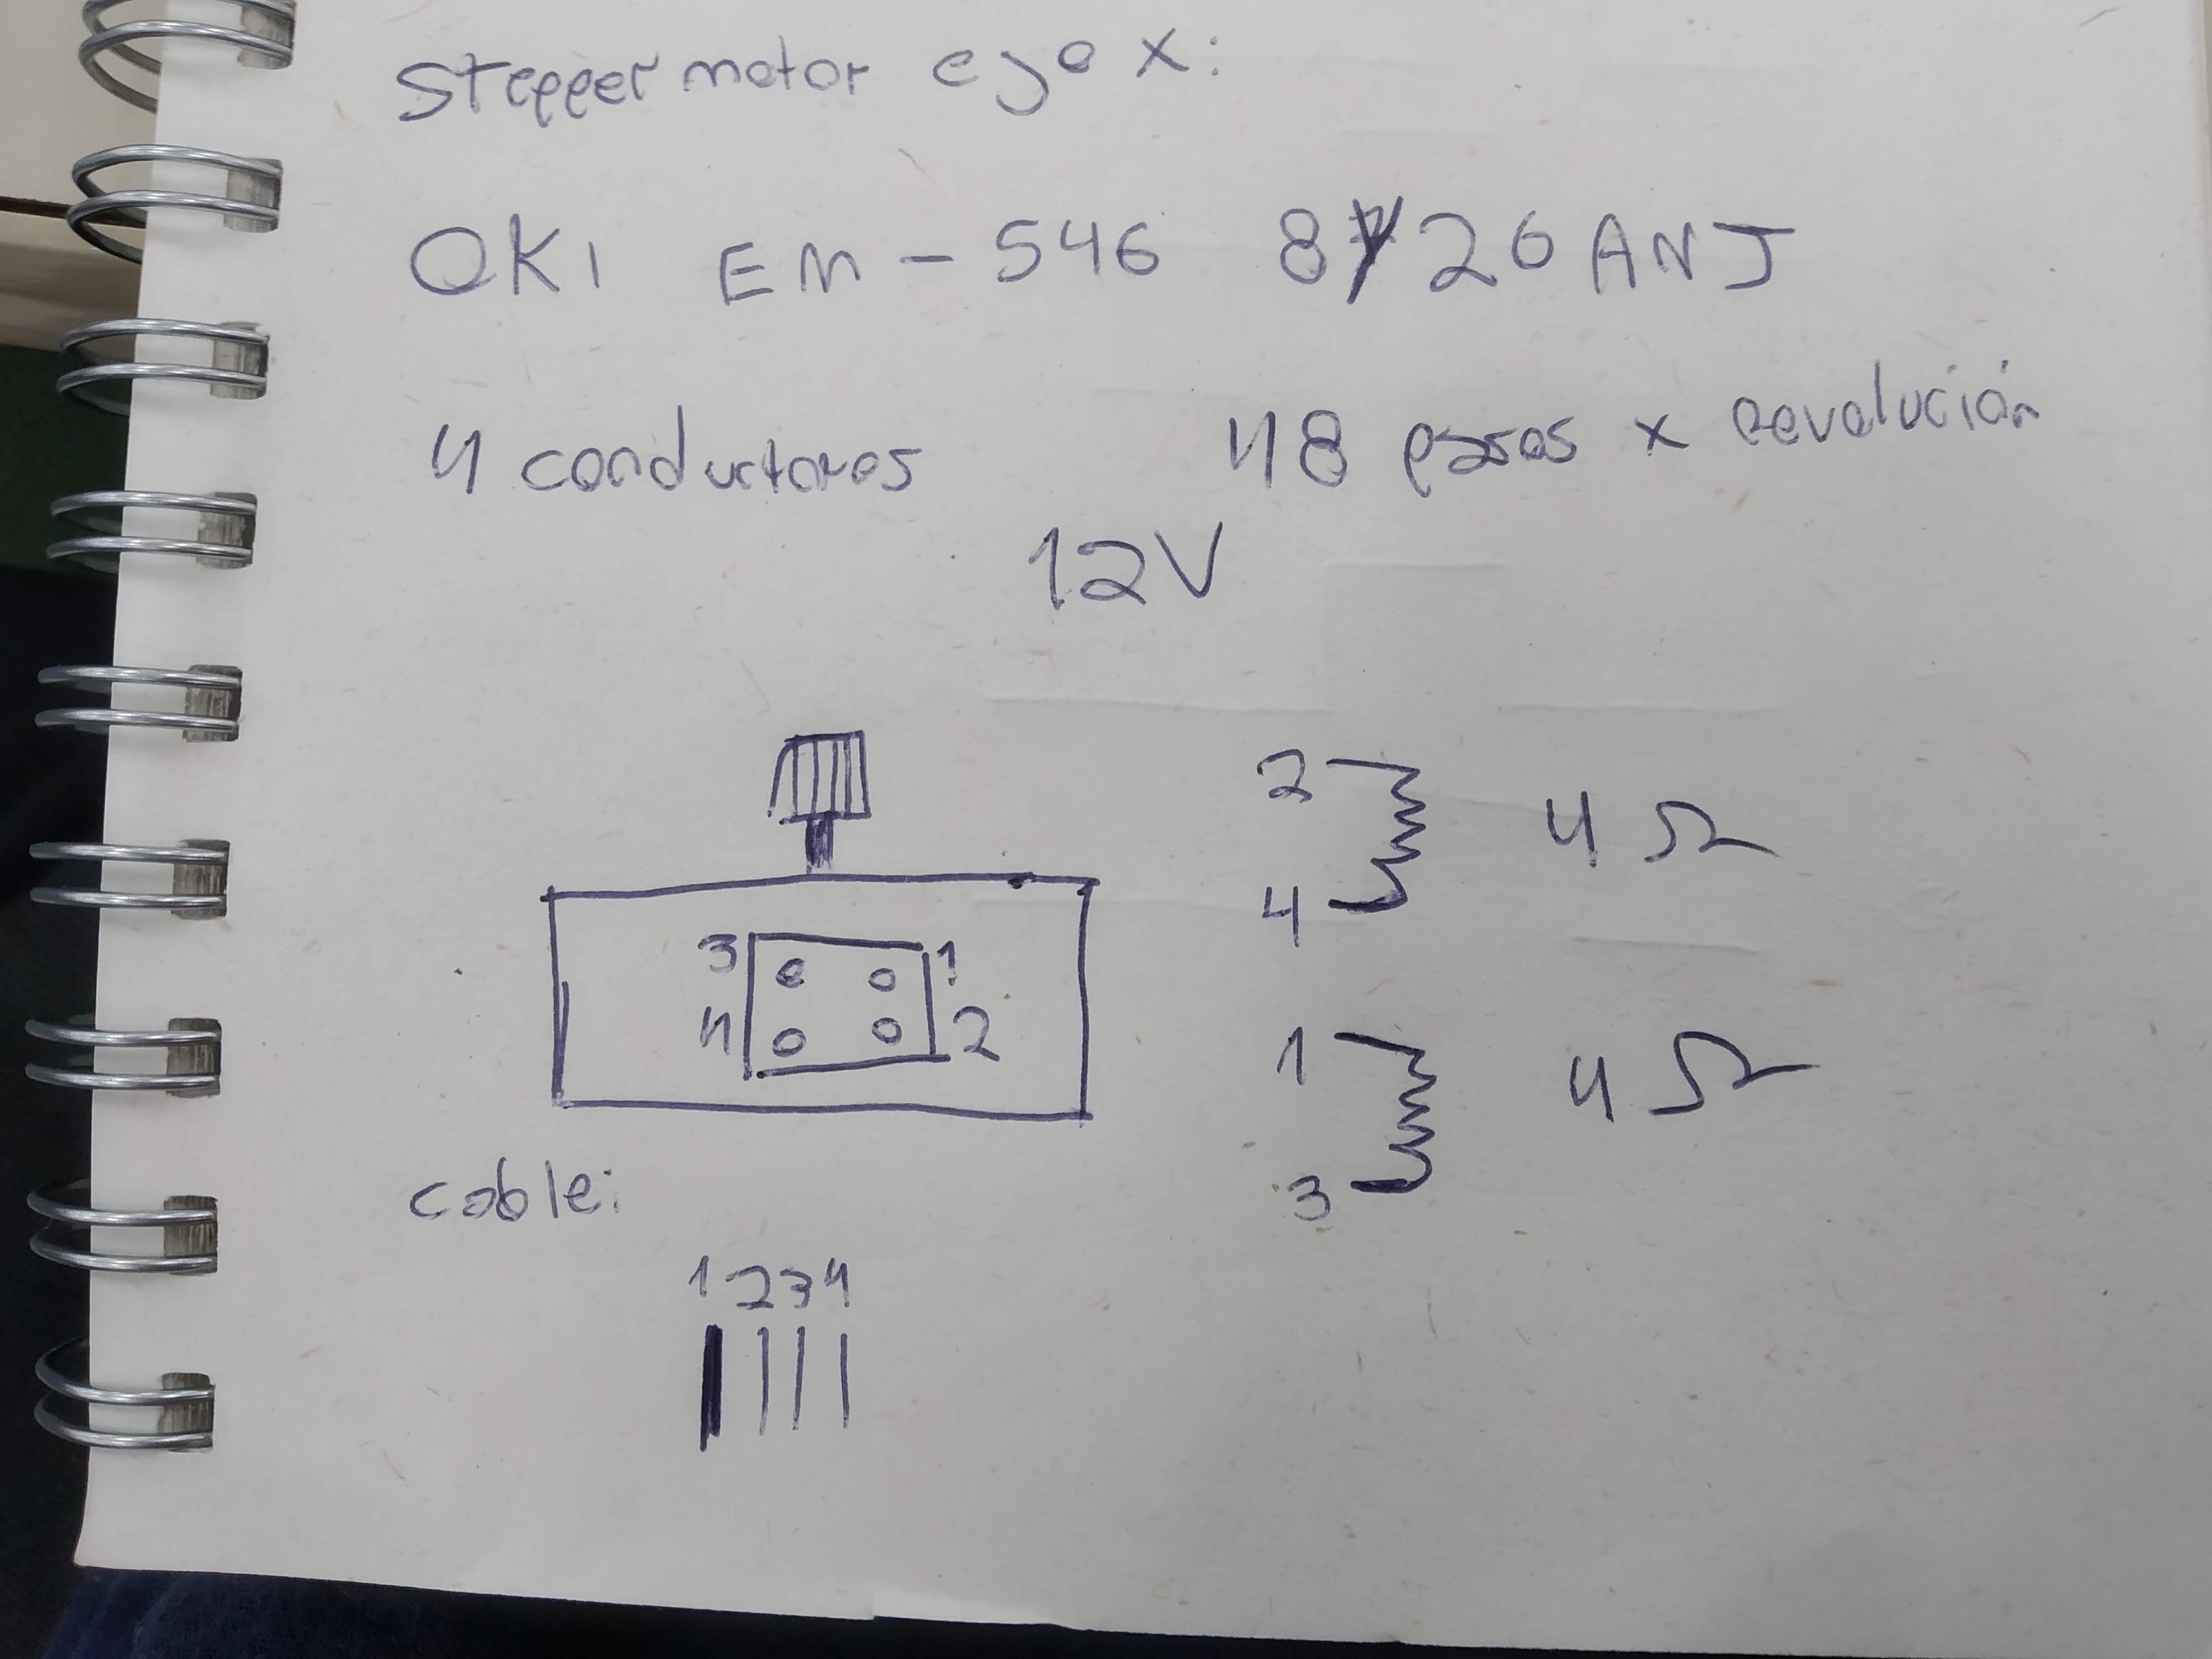 Stepper motor eje X:
OKI EM-546 8 26 ANJ
4 conductores 48 pasos x revolución
12V
2
4 Ω
4
3 1
4 2
1
4 Ω
3
cable:
1 2 3 4